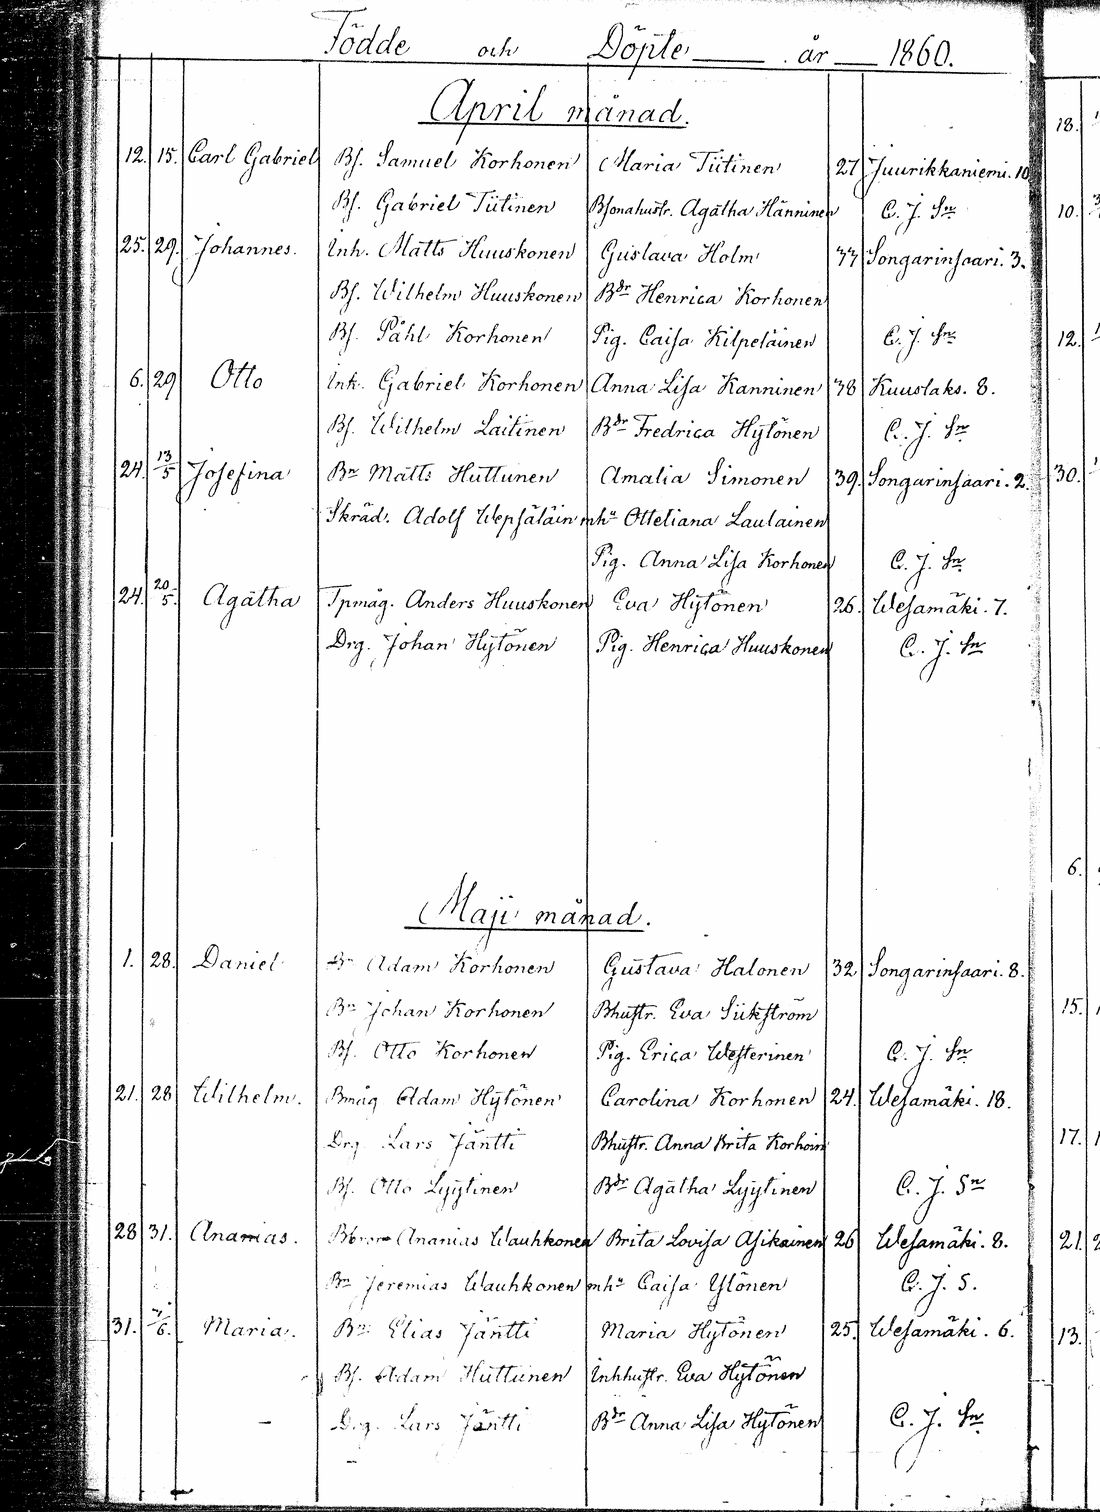 Födde och Döpte år 1860.
April månad.
12. 15. Carl Gabriel Bs. Samuel Korhonen Maria Tiitinen 27 Juurikkaniemi. 10
Bs. Gabriel Tiitinen Bsonahustr. Agatha Hänninen C. J. Sn
25. 29. Johannes. Inh. Matts Huuskonen Gustava Holm 77 Songarinsaari. 3.
Bs. Wilhelm Huuskonen Bdr Henrica Korhonen
Bs. Påhl Korhonen Pig. Caisa Kilpeläinen C. J. Sn
6. 29 Otto Inh. Gabriel Korhonen Anna Lisa Kanninen 78 Kuuslaks. 8.
Bs. Wilhelm Laitinen Bdr Fredrica Hytönen C. J. Sn
24. 13/5 Josefina Bn Matts Huttunen Amalia Simonen 39. Songarinsaari. 2.
Skräd. Adolf Wepsäläin mhu Otteliana Laulainen
Pig. Anna Lisa Korhonen C. J. Sn
24. 20/5. Agatha Tpmåg. Anders Huuskonen Eva Hytönen 26. Wesamäki. 7.
Drg. Johan Hytönen Pig. Henrica Huuskonen C. J. Sn
Maji månad.
1. 28. Daniel Bn Adam Korhonen Gustava Halonen 32 Songarinsaari. 8.
Bn Johan Korhonen Bhustr. Eva Sükström
Bs. Otto Korhonen Pig. Erica Westerinen C. J. Sn
21. 28 Wilhelm. Bmåg Adam Hytönen Carolina Korhonen 24. Wesamäki. 18.
Drg Lars Jäntti Bhustr. Anna Brita Korhoin
Bs. Otto Lyytinen Bdr Agatha Lyytinen C. J. Sn
28 31. Ananias. Bbror Ananias Wauhkonen Brita Lovisa Asikainen 26 Wesamäki. 8.
Bn Jeremias Wauhkonen mhu Caisa Ylönen C. J. S.
31. /6. Maria. Bn Elias Jäntti Maria Hytönen 25. Wesamäki. 6.
Bs. Adam Huttunen Inhhustr. Eva Hytönen
Drg. Lars Jäntti Bdr Anna Lisa Hytönen C. J. Sn
18.
10.
12.
30.
6.
15.
17.
21.
13.